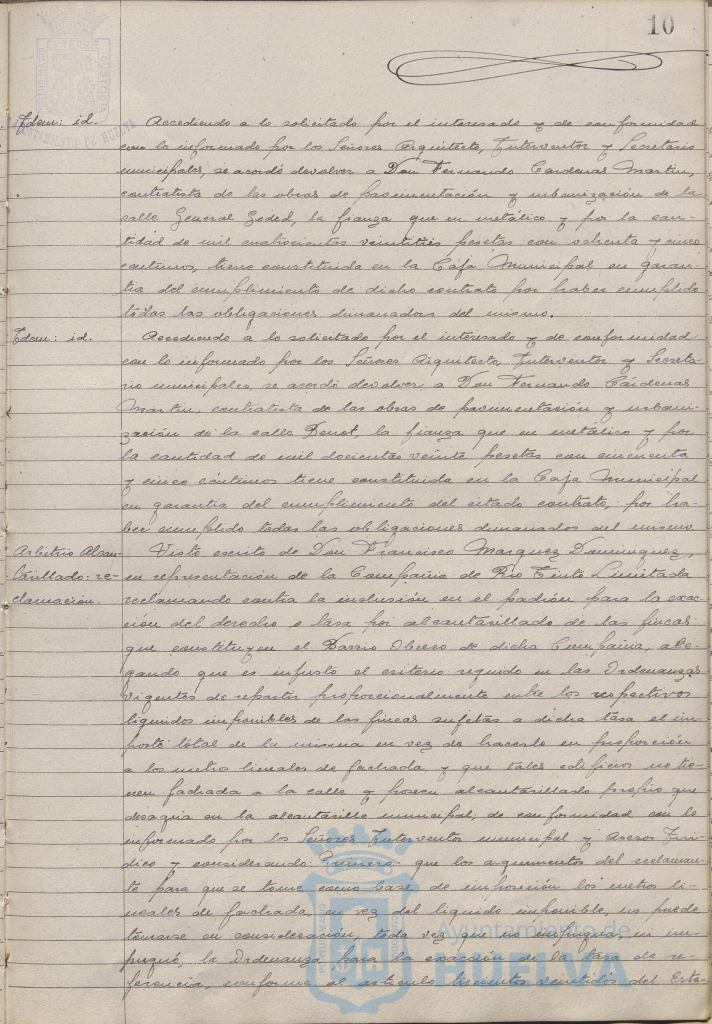 10
Idem: id.
Accediendo a lo solicitado por el interesado y de conformidad
con lo informado por los Señores Arquitecto, Interventor y Secretario
municipales, se acordó devolver a Don Fernando Cardenas Martin,
contratista de las obras de pavimentación y urbanización de la
calle General Goded, la fianza que en metálico y por la can-
tidad de mil cuatrocientas veintitrés pesetas con ochenta y cinco
centimos, tiene constituida en la Caja Municipal en garan-
tia del cumplimiento de dicho contrato por haber cumplido
todas las obligaciones dimanadas del mismo.
Idem: id.
Accediendo a lo solicitado por el interesado y de conformidad
con lo informado por los Señores Arquitecto, Interventor y Secreta-
rio municipales, se acordó devolver a Don Fernando Cárdenas
Martin, contratista de las obras de pavimentación y urbani-
zación de la calle Benot, la fianza que en metálico y por
la cantidad de mil docientas veinte pesetas con cincuenta
y cinco céntimos tiene constituida en la Caja Municipal
en garantia del cumplimiento del citado contrato, por ha-
ber cumplido todas las obligaciones dimanadas del mismo.
Arbitrio Alcan-
tarillado: re-
clamación.
Visto escrito de Don Francisco Marquez Dominguez,
en representación de la Compañia de Rio Tinto Limitada
reclamando contra la inclusión en el padrón para la exac-
ción del derecho o tasa por alcantarillado de las fincas
que constituyen el Barrio Obrero de dicha Compañia, ale-
gando que es injusto el criterio seguido en las Ordenanzas
vigentes de repartir proporcionalmente entre los respectivos
liquidos imponibles de las fincas sujetas a dicha tasa el im-
porte total de la misma en vez de hacerlo en proporción
a los metros lineales de fachada y que tales edificios no tie-
nen fachada a la calle y poseen alcantarillado propio que
desagua en la alcantarilla municipal; de conformidad con lo
informado por los Señores Interventor municipal y Asesor Juri-
dico y considerando: Primero: que los argumentos del reclaman-
te para que se tome como base de imposición los metros li-
neales de fachada, en vez del liquido imponible, no puede
tomarse en consideración, toda vez que no impugna, ni im-
pugnó, la Ordenanza para la exacción de la tasa de re-
ferencia, conforme al articulo trescientos veintidos del Esta-
Ayuntamiento de
HUELVA